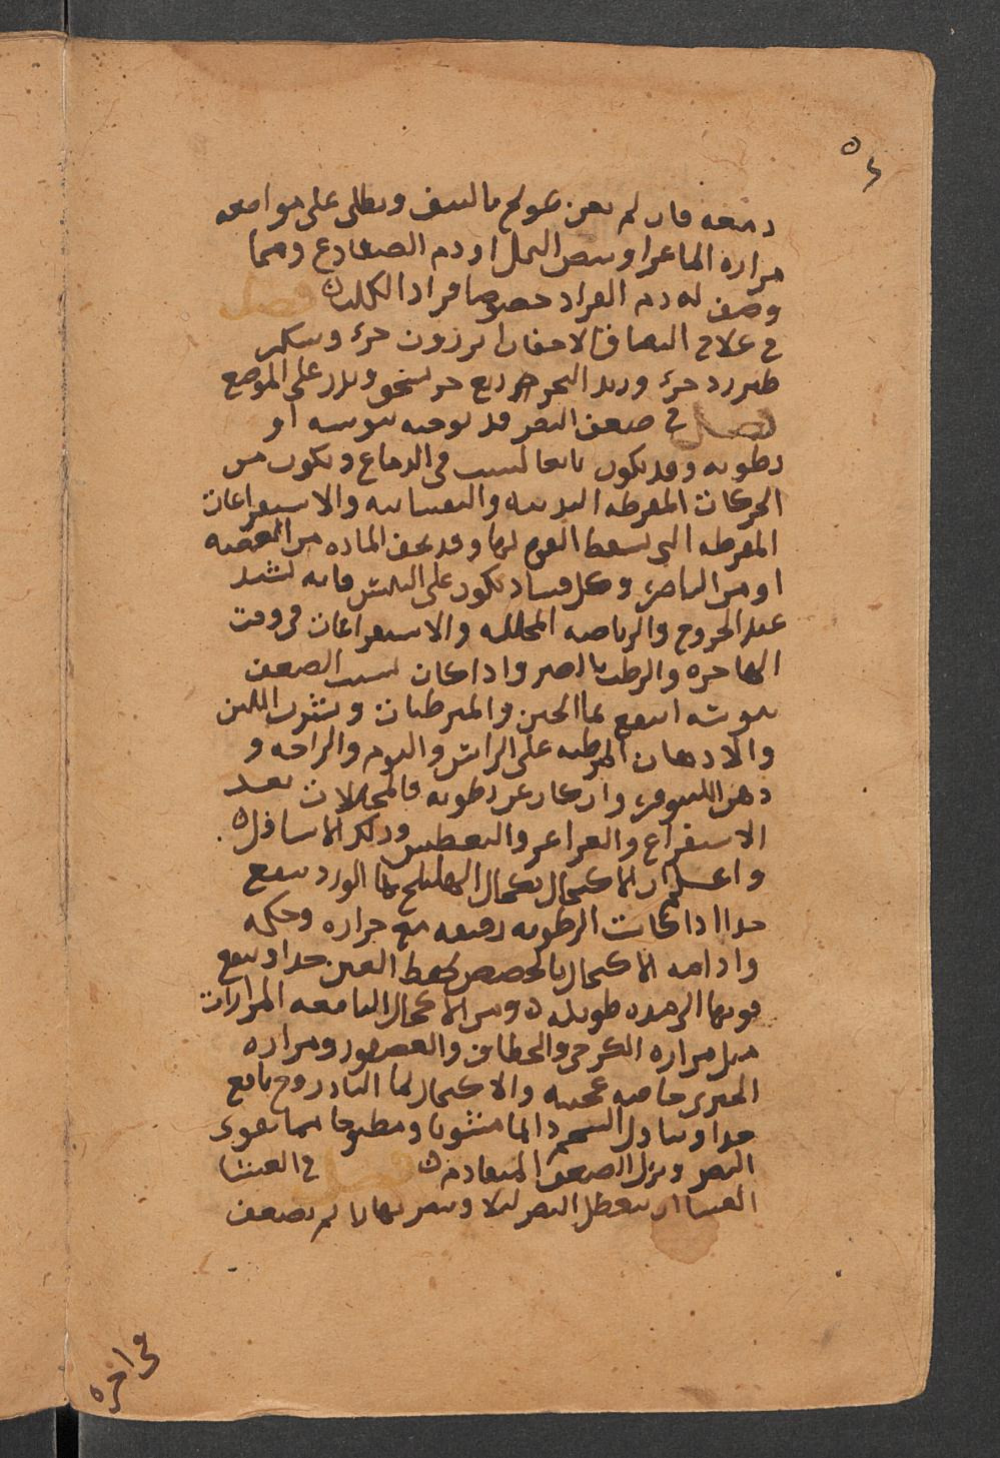 دفعه فان لم يغن عولج بالنتف ويطلى على مواضعه
مرارة الماعز او بيض النمل او دم الضفادع ومما
وصف له دم القراد خصوصا قراد الكلاب فصل
في علاج التصاق الاجفان انزروت جزء وسكر
طبرزد جزء وزبد البحر ربع جزء يسحق ويذر على الموضع
فصل في ضعف البصر قد يوجبه يبوسه او
رطوبه وقد يكون تابعا لسبب في الدماغ ويكون من
الحركات المفرطه البدنيه والنفسانيه والاستفراغات
المفرطه التي تسقط القوه لها وقد تجف الماده من العصبه
او من الباصره وكل فساد يكون على اليبس فانه يشتد
عند الجوع والرياضه المحلله والاستفراغات في وقت
الهاجره والرطب بالضد واذا كان سبب الضعف
يبوسه انتفع بماء الجبن والمرطبات وشرب اللبن
والادهان المرطبه على الراس والنوم والراحه و
دهن النيلوفر وان كان عن رطوبه فالمحللات بعد
الاستفراغ والغراغر والتعطيس ودلك الاسافل
واعلم ان الاكتحال بحكاك الهليلج بماء الورد ينفع
جدا اذا كانت الرطوبه رقيقه مع حراره وحكه
وادامه الاكتحال بالحضض يحفظ العين جدا وينفع
قوتها الى مده طويله ومن الاكحال النافعه المرارات
مثل مراره الكركي والخطاف والعصفور ومراره
الحبرى خاصيه عجيبه والاكتحال بماء الباذروج نافع
جدا وتناول الشلجم دائما مشويا ومطبوخا مما يقوي
البصر ويزيل الضعف المتقادم فصل في العشا
العشا ان يتعطل البصر ليلا ويبصر نهارا ثم يضعف
في اخره